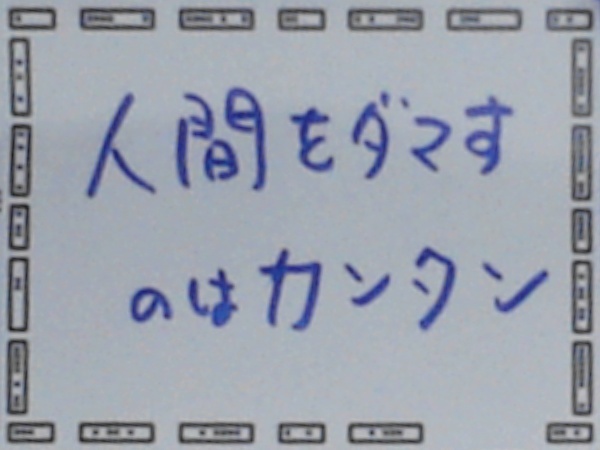 人間をダマす
のはカンタン